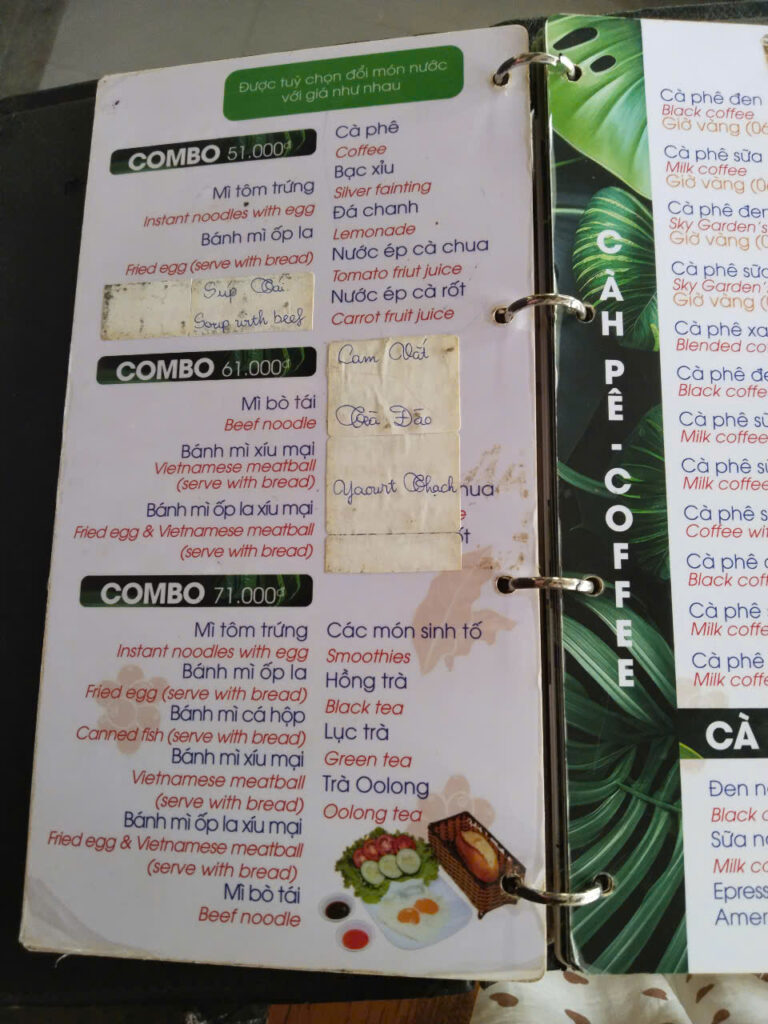 Được tuỳ chọn đổi món nước
với giá như nhau
COMBO 51.000đ
Mì tôm trứng
Instant noodles with egg
Bánh mì ốp la
Fried egg (serve with bread)
Soup with beef
Cà phê
Coffee
Bạc xỉu
Silver fainting
Đá chanh
Lemonade
Nước ép cà chua
Tomato friut juice
Nước ép cà rốt
Carrot fruit juice
COMBO 61.000đ
Mì bò tái
Beef noodle
Bánh mì xíu mại
Vietnamese meatball
(serve with bread)
Bánh mì ốp la xíu mại
Fried egg & Vietnamese meatball
(serve with bread)
Cam Vắt
Đào
Yaourt
COMBO 71.000đ
Mì tôm trứng
Instant noodles with egg
Bánh mì ốp la
Fried egg (serve with bread)
Bánh mì cá hộp
Canned fish (serve with bread)
Bánh mì xíu mại
Vietnamese meatball
(serve with bread)
Bánh mì ốp la xíu mại
Fried egg & Vietnamese meatball
(serve with bread)
Mì bò tái
Beef noodle
Các món sinh tố
Smoothies
Hồng trà
Black tea
Lục trà
Green tea
Trà Oolong
Oolong tea
CÀH PÊ - COFFEE
Cà phê đen
Black coffee
Giờ vàng (06
Cà phê sữa
Milk coffee
Giờ vàng (0
Cà phê đen
Sky Garden's
Giờ vàng (0
Cà phê sữa
Sky Garden's
Giờ vàng (0
Cà phê xa
Blended co
Cà phê đe
Black coffe
Cà phê sữ
Milk coffee
Cà phê sữ
Milk coffee
Cà phê s
Coffee wit
Cà phê
Black coff
Cà phê
Milk coffe
Cà phê
Milk coffe
CÀ
Đen n
Black c
Sữa n
Milk co
Epress
Amer